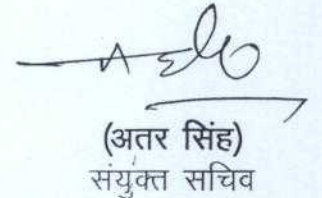 (अतर सिंह)
संयुक्त सचिव